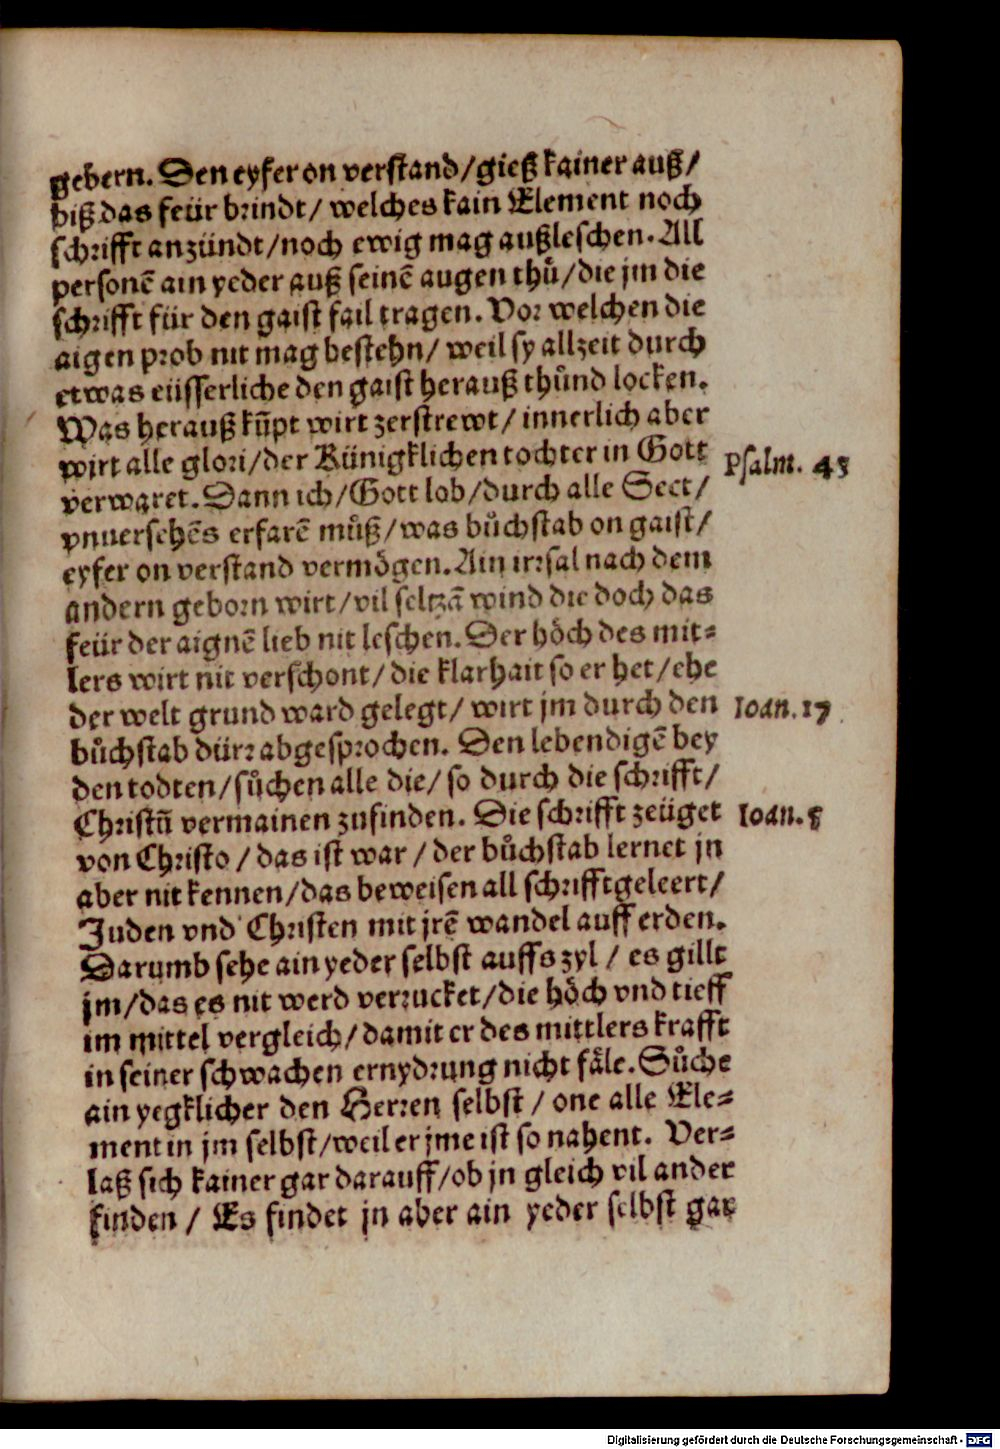 gebern. Den eyfer on verstand/gieß kainer auß/
biß das feür brindt/ welches kain Element noch
schrifft anzündt/noch ewig mag außleschen. All
personẽ ain yeder auß seinẽ augen thů/die jm die
schrifft für den gaist fail tragen. Vor welchen die
aigen prob nit mag bestehn/ weil sy allzeit durch
etwas eüsserliche den gaist herauß thůnd locken.
Was herauß kũpt wirt zerstrewt/ innerlich aber
wirt alle glori/der Künigklichen tochter in Gott
verwaret. Dann ich/Gott lob/durch alle Sect/
vnuersehẽs erfarẽ můß/was bůchstab on gaist/
eyfer on verstand vermögen. Ain irrsal nach dem
andern geborn wirt/vil seltzã wind die doch das
feür der aignẽ lieb nit leschen. Der höch des mit=
lers wirt nit verschont/die klarhait so er het/ehe
der welt grund ward gelegt/ wirt jm durch den
bůchstab dürr abgesprochen. Den lebendigẽ bey
den todten/sůchen alle die/ so durch die schrifft/
Christũ vermainen zufinden. Die schrifft zeüget
von Christo /das ist war /der bůchstab lernet jn
aber nit kennen/das beweisen all schrifftgeleert/
Juden vnd Christen mit jrẽ wandel auff erden.
Darumb sehe ain yeder selbst auffs zyl / es gillt
jm/das es nit werd verrucket/die höch vnd tieff
im mittel vergleich/damit er des mittlers krafft
in seiner schwachen ernydrung nicht fäle. Sůche
ain yegklicher den Herren selbst / one alle Ele=
ment in jm selbst/weil er jme ist so nahent. Ver=
laß sich kainer gar darauff/ob jn gleich vil ander
finden / Es findet jn aber ain yeder selbst gar
Psalm. 45
Ioan. 17
Ioan. 5
Digitalisierung gefördert durch die Deutsche Forschungsgemeinschaft - DFG